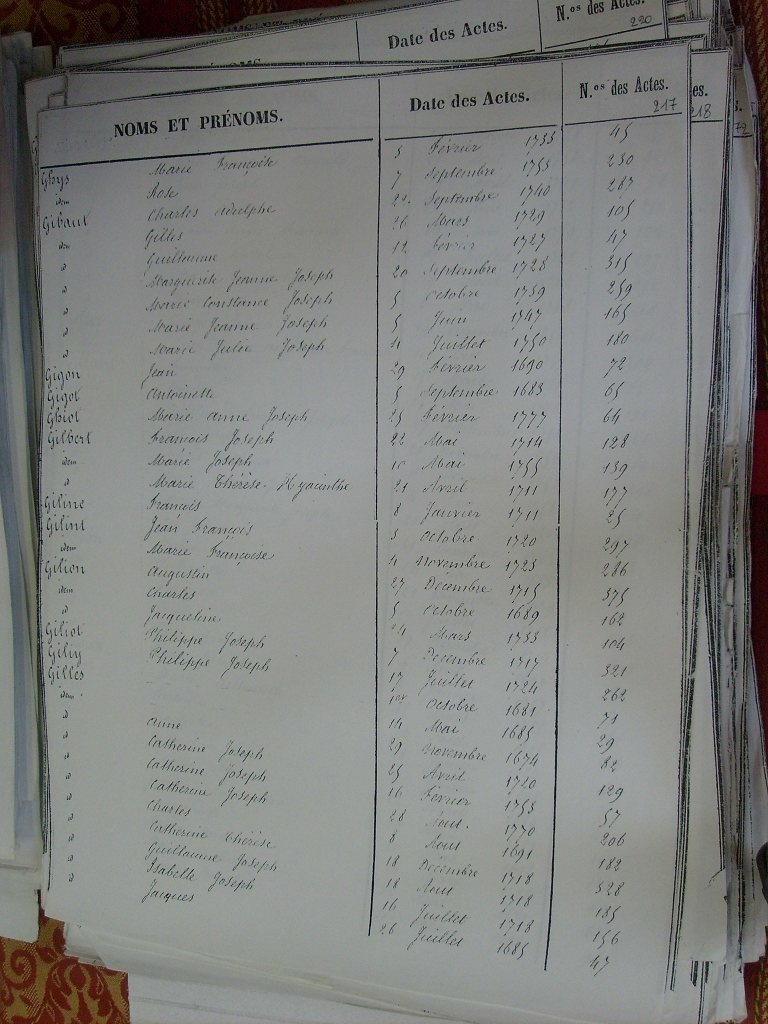 Date des Actes. N.os des Actes.
220
NOMS ET PRÉNOMS. Date des Actes. N.os des Actes.
217
218
Ghys Marie Françoise 5 Février 1755 45
idem Rose 7 Septembre 1753 230
Gibaut Charles Adelphe 22 Septembre 1740 287
idem Gilles 26 Mars 1729 105
d Guillaume 12 Février 1727 47
d Marguerite Jeanne Joseph 20 Septembre 1728 315
d Marie Constance Joseph 5 Octobre 1739 259
d Marie Jeanne Joseph 5 Juin 1747 165
d Marie Julie Joseph 4 Juillet 1750 180
Gigon Jean 29 Février 1690 72
Gigot Antoinette 5 Septembre 1683 65
Ghiot Marie Anne Joseph 25 Février 1777 64
Gilbert François Joseph 22 Mai 1714 128
idem Marie Joseph 10 Mai 1755 139
d Marie Thérèse Hyacinthe 21 Avril 1711 177
Giline François 8 Janvier 1711 25
Gilint Jean François 5 Octobre 1720 297
idem Marie Françoise 4 Novembre 1723 286
Gilion Augustin 27 Décembre 1715 375
idem Charles 5 Octobre 1689 162
d Jacqueline 24 Mars 1733 104
Giliot Philippe Joseph 7 Décembre 1717 321
Giliy Philippe Joseph 17 Juillet 1724 262
Gilles 1er Octobre 1681 71
idem 14 Mai 1685 29
d Anne 29 Novembre 1674 82
d Catherine Joseph 25 Avril 1720 129
d Catherine Joseph 16 Février 1753 57
d Catherine Joseph 28 Aout 1770 206
d Charles 8 Aout 1691 182
d Catherine Thérèse 18 Décembre 1718 328
d Guillaume Joseph 18 Aout 1718 185
d Isabelle Joseph 16 Juillet 1718 156
d Jacques 26 Juillet 1685 47